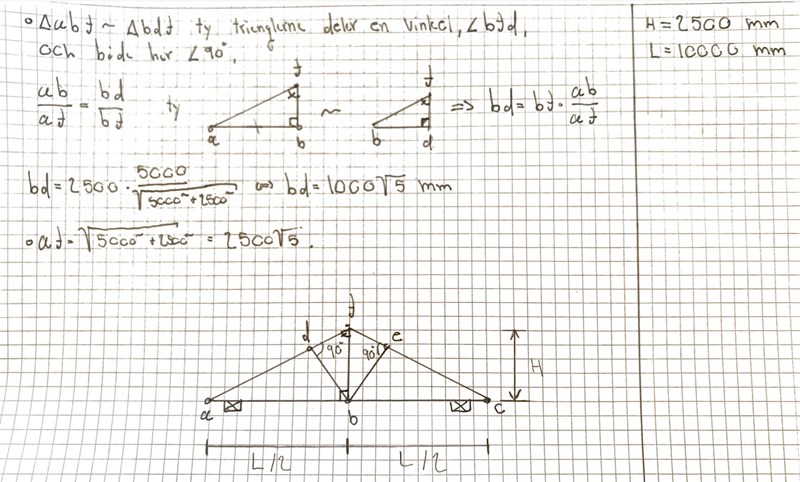 ∘ Δabf ~ Δbdf ty trianglarna delar en vinkel, ∠bfd,
och båda har ∠90°,
ab/af = bd/bf ty
f
x
a
b
~
f
x
b
d
=> bd = bf · ab/af
bd = 2500 · 5000/√(5000² + 2500²) <=> bd = 1000√5 mm
∘ af = √(5000² + 2500²) = 2500√5.
H = 2500 mm
L = 10000 mm
f
x
d
e
90°
90°
H
a
b
c
L/2
L/2